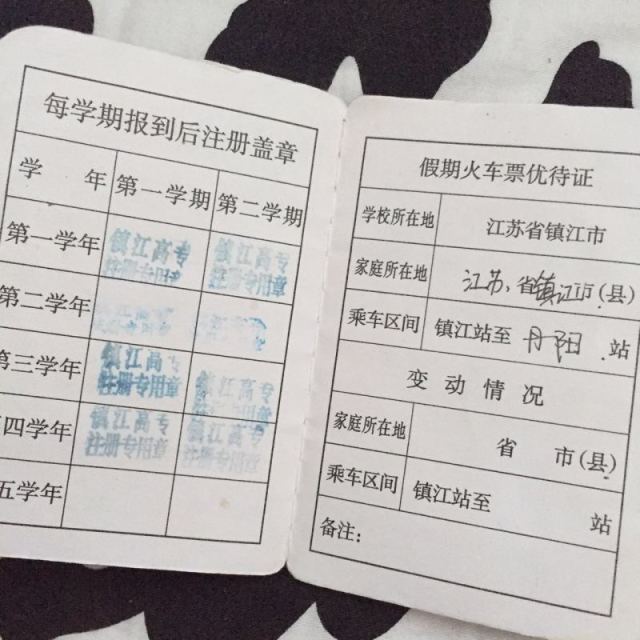 每学期报到后注册盖章
学 年 第一学期 第二学期
第一学年 镇江高专 注册专用章 镇江高专 注册专用章
第二学年
第三学年 镇江高专 注册专用章 镇江高专 注册专用章
四学年 镇江高专 注册专用章 镇江高专 注册专用章
五学年
假期火车票优待证
学校所在地 江苏省镇江市
家庭所在地 江苏省镇江市(县)
乘车区间 镇江站至 丹阳 站
变动情况
家庭所在地 省 市(县)
乘车区间 镇江站至 站
备注: